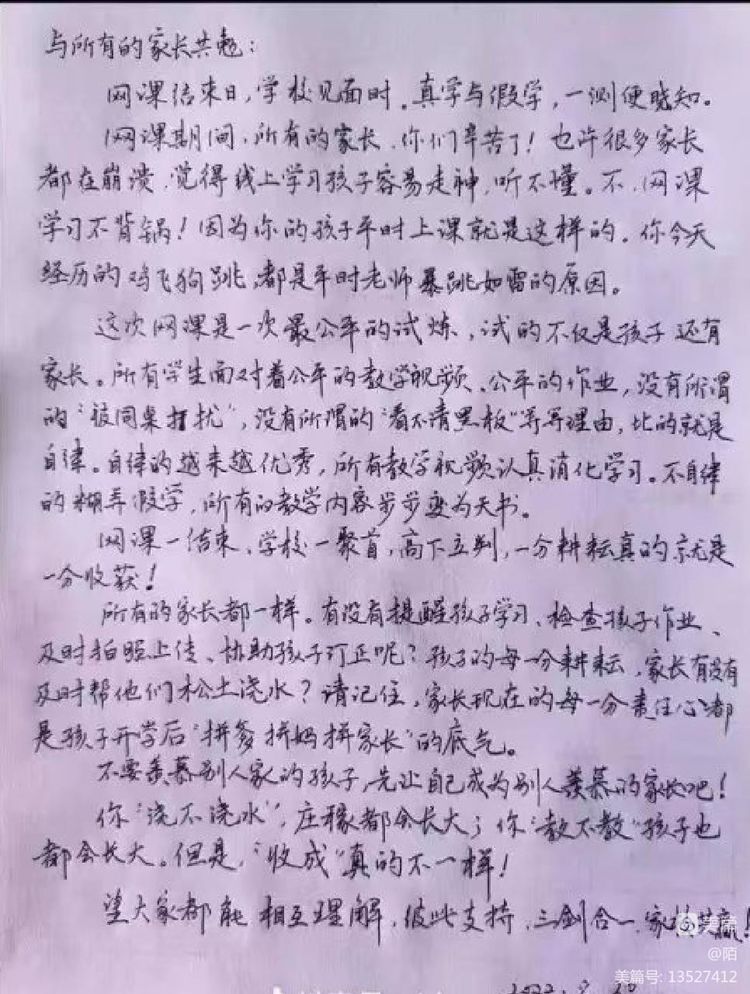 与所有的家长共勉：
网课结束日，学校见面时。真学与假学，一测便晓知。
网课期间，所有的家长，你们辛苦了！也许很多家长
都在崩溃，觉得线上学习孩子容易走神，听不懂。不，网课
学习不背锅！因为你的孩子平时上课就是这样的。你今天
经历的鸡飞狗跳，都是平时老师暴跳如雷的原因。
这次网课是一次最公平的试炼，试的不仅是孩子还有
家长。所有学生面对着公平的教学视频、公平的作业，没有所谓
的“被同桌打扰”，没有所谓的“看不清黑板”等等理由，比的就是
自律。自律的越来越优秀，所有教学视频认真消化学习。不自律
的糊弄假学，所有的教学内容步步变为天书。
网课一结束、学校一聚首，高下立判，一分耕耘真的就是
一分收获！
所有的家长都一样。有没有提醒孩子学习、检查孩子作业、
及时拍照上传、协助孩子订正呢？孩子的每一分耕耘，家长有没有
及时帮他们松土浇水？请记住，家长现在的每一分责任心都
是孩子开学后“拼爹拼妈拼家长”的底气。
不要羡慕别人家的孩子，先让自己成为别人羡慕的家长吧！
你“浇不浇水”，庄稼都会长大；你“教不教”孩子也
都会长大。但是，“收成”真的不一样！
望大家都能相互理解，彼此支持，三剑合一，家校共赢！
美篇
@陌
美篇号: 13527412